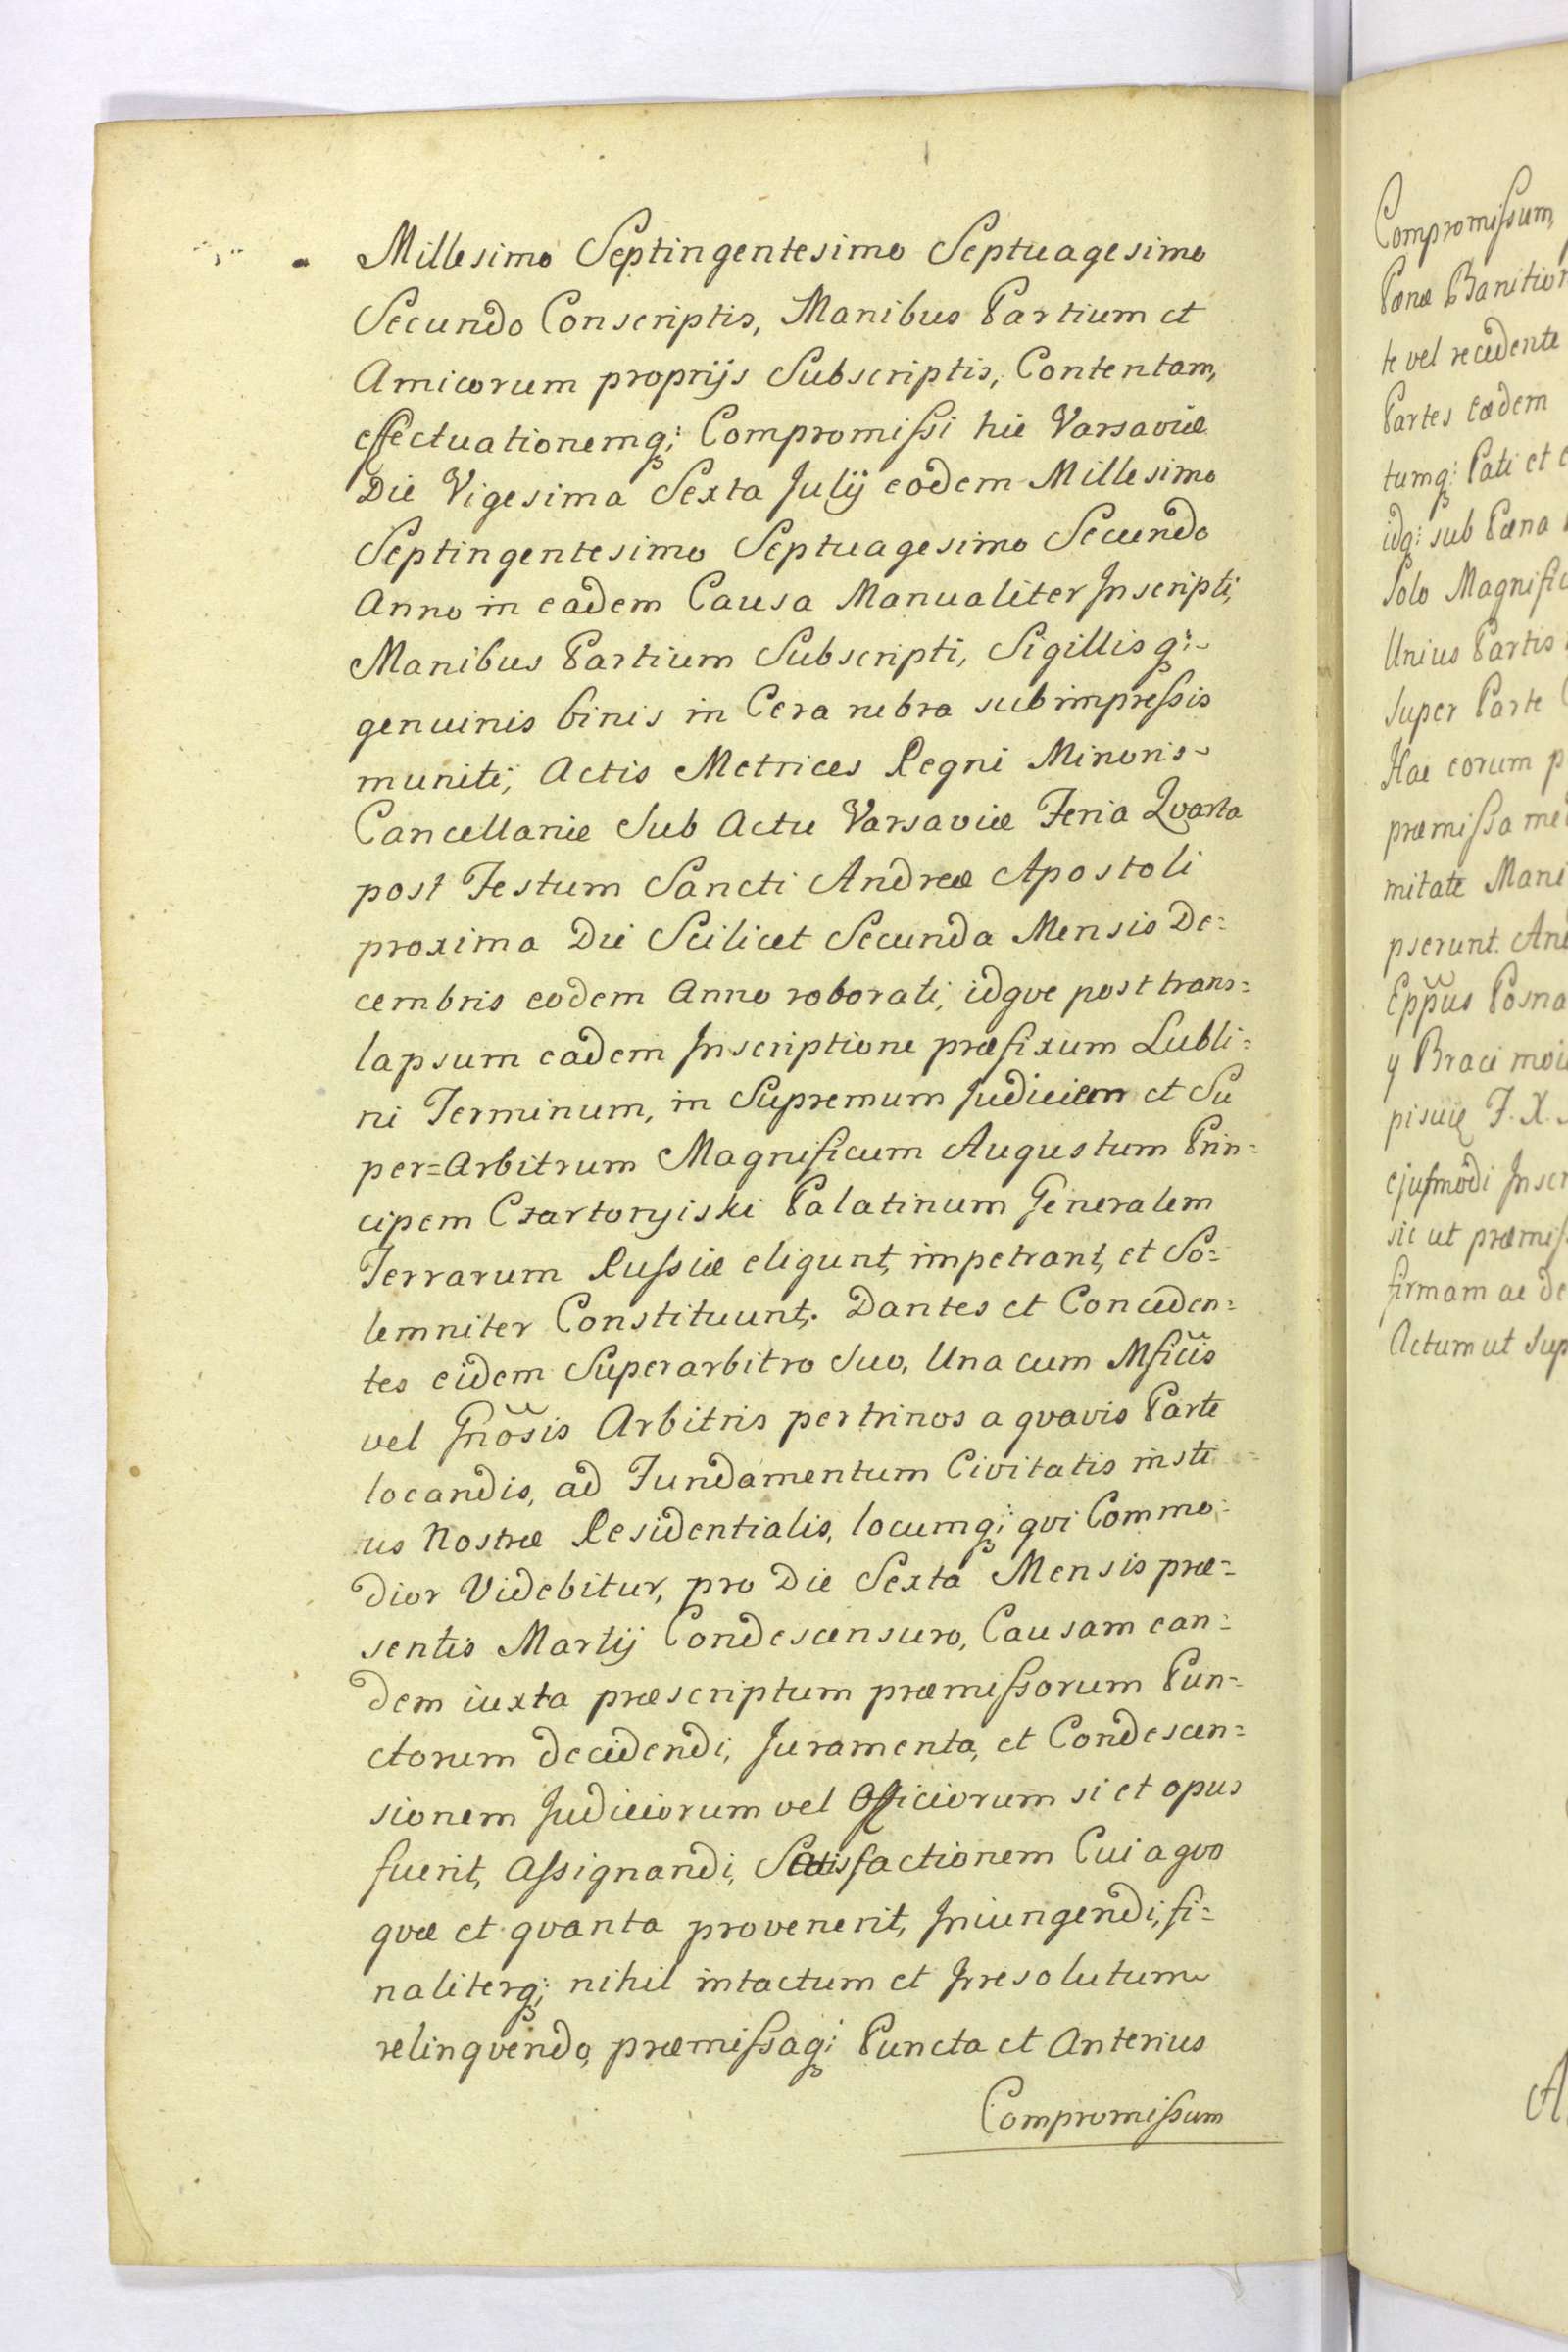 Millesimo Septingentesimo Septuagesimo
Secundo Conscriptis, Manibus Partium et
Amicorum proprijs Subscriptis, Contentam,
effectuationemq; Compromissi hic Varsaviæ
Die Vigesima Sexta Julij eodem Millesimo
Septingentesimo Septuagesimo Secundo
Anno in eadem Causa Manualiter Inscripti,
Manibus Partium Subscripti, Sigillisq;
genuinis binis in Cera rubra subimpressis
muniti, Actis Metrices Regni Minoris
Cancellariæ Sub Actu Varsaviæ Feria Qvarta
post Festum Sancti Andreæ Apostoli
proxima Die Scilicet Secunda Mensis De=
cembris eodem Anno roborati, idqve post trans=
lapsum eadem Inscriptione præfixum Lubli=
ni Terminum, in Supremum Judicem et Su
per=Arbitrum Magnificum Augustum Prin=
cipem Czartoryiski Palatinum Generalem
Terrarum Russiæ eligunt, impetrant, et So=
lemniter Constituunt. Dantes et Conceden=
tes eidem Superarbitro Suo, Una cum Mficis
vel Gnosis Arbitris per trinos a qvavis Parte
locandis, ad Fundamentum Civitatis insti
us Nostræ Residentialis, locumq; qvi Commo=
dior Videbitur, pro Die Sexta Mensis præ=
sentis Martij Condescensuro, Causam ean=
dem iuxta præscriptum præmissorum Pun=
ctorum decidendi, Juramenta, et Condescen=
sionem Judiciorum vel Officiorum si et opus
fuerit, Assignandi, Satisfactionem Cui a qvo
qvæ et qvanta provenerit, Iniungendi, fi=
naliterq; nihil intactum et Irresolutum
relinqvendo, præmissaq; Puncta et Anterius
Compromissum
Compromissum,
Pœnæ Banition
te vel recedente
Partes eædem
tumq; Pati et
idq; sub Pœna
Solo Magnific
Unius Partis
super Parte
Hac eorum p
præmissa med
mitate Mani
pserunt. And
Eppus Posna
y Braci moi
pisuię J. X.
ejusmodi Inscr
sic ut præmiss
firmam ac de
Actum ut Sup
A